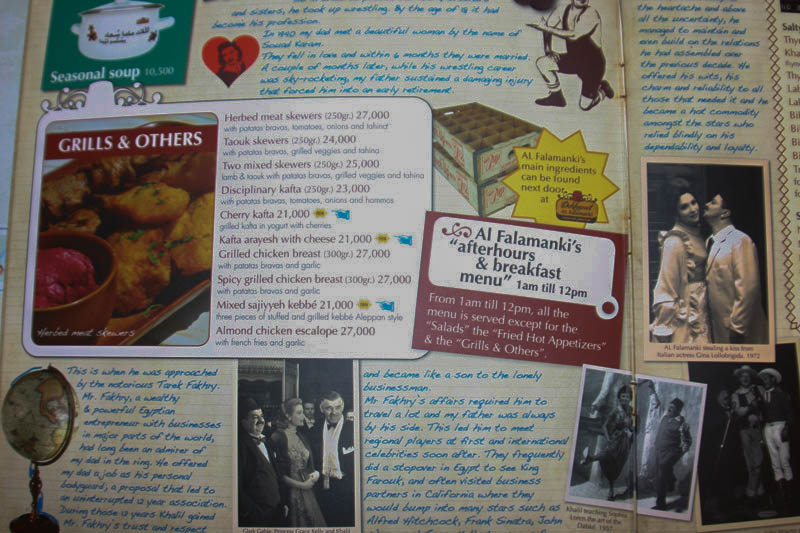 and sisters, he took up wrestling. By the age of 19 it had
become his profession.
In 1940 my dad met a beautiful woman by the name of
Souad Karam.
They fell in love and within 6 months they were married.
A couple of months later, while his wrestling career
was sky-rocketing, my father sustained a damaging injury
that forced him into an early retirement.
Seasonal soup 10,500
GRILLS & OTHERS
Herbed meat skewers
Herbed meat skewers (250gr.) 27,000
with patatas bravas, tomatoes, onions and tahina
Taouk skewers (250gr.) 24,000
with patatas bravas, grilled veggies and tahina
Two mixed skewers (250gr.) 25,000
lamb & taouk with patatas bravas, grilled veggies and tahina
Disciplinary kafta (250gr.) 23,000
with patatas bravas, tomatoes, onions and hommos
Cherry kafta 21,000
grilled kafta in yogurt with cherries
Kafta arayesh with cheese 21,000
Grilled chicken breast (300gr.) 27,000
with patatas bravas and garlic
Spicy grilled chicken breast (300gr.) 27,000
with patatas bravas and garlic
Mixed sajiyyeh kebbé 21,000
three pieces of stuffed and grilled kebbé Aleppan style
Almond chicken escalope 27,000
with french fries and garlic
AL Falamanki's
main ingredients
can be found
next door
at
Al Falamanki's
"afterhours
& breakfast
menu" 1am till 12pm
From 1am till 12pm, all the
menu is served except for the
"Salads" the "Fried Hot Appetizers"
& the "Grills & Others".
the heartache and above
all the uncertainty, he
managed to maintain and
even build on the relations
he had assembled over
the previous decade. He
offered his wits, his
charm and reliability to all
those that needed it and he
became a hot commodity
amongst the stars who
relied blindly on his
dependability and loyalty.
AL Falamanki stealing a kiss from
Italian actress Gina Lollobrigida. 1972
This is when he was approached
by the notorious Tarek Fakhry.
Mr. Fakhry, a wealthy
& powerful Egyptian
entrepreneur with businesses
in major parts of the world,
had long been an admirer of
my dad in the ring. He offered
my dad a job as his personal
bodyguard, a proposal that led to
an uninterrupted 12 year association.
During those 12 years Khalil gained
Mr. Fakhry's trust and respect
Clark Gable, Princess Grace Kelly and Khalil
and became like a son to the lonely
businessman.
Mr Fakhry's affairs required him to
travel a lot and my father was always
by his side. This led him to meet
regional players at first and international
celebrities soon after. They frequently
did a stopover in Egypt to see King
Farouk, and often visited business
partners in California where they
would bump into many stars such as
Alfred Hitchcock, Frank Sinatra, John
Khalil teaching Sophia
Loren the art of the
Dabké. 1957
Salty
Thy
Kha
Thy
Lab
Lab